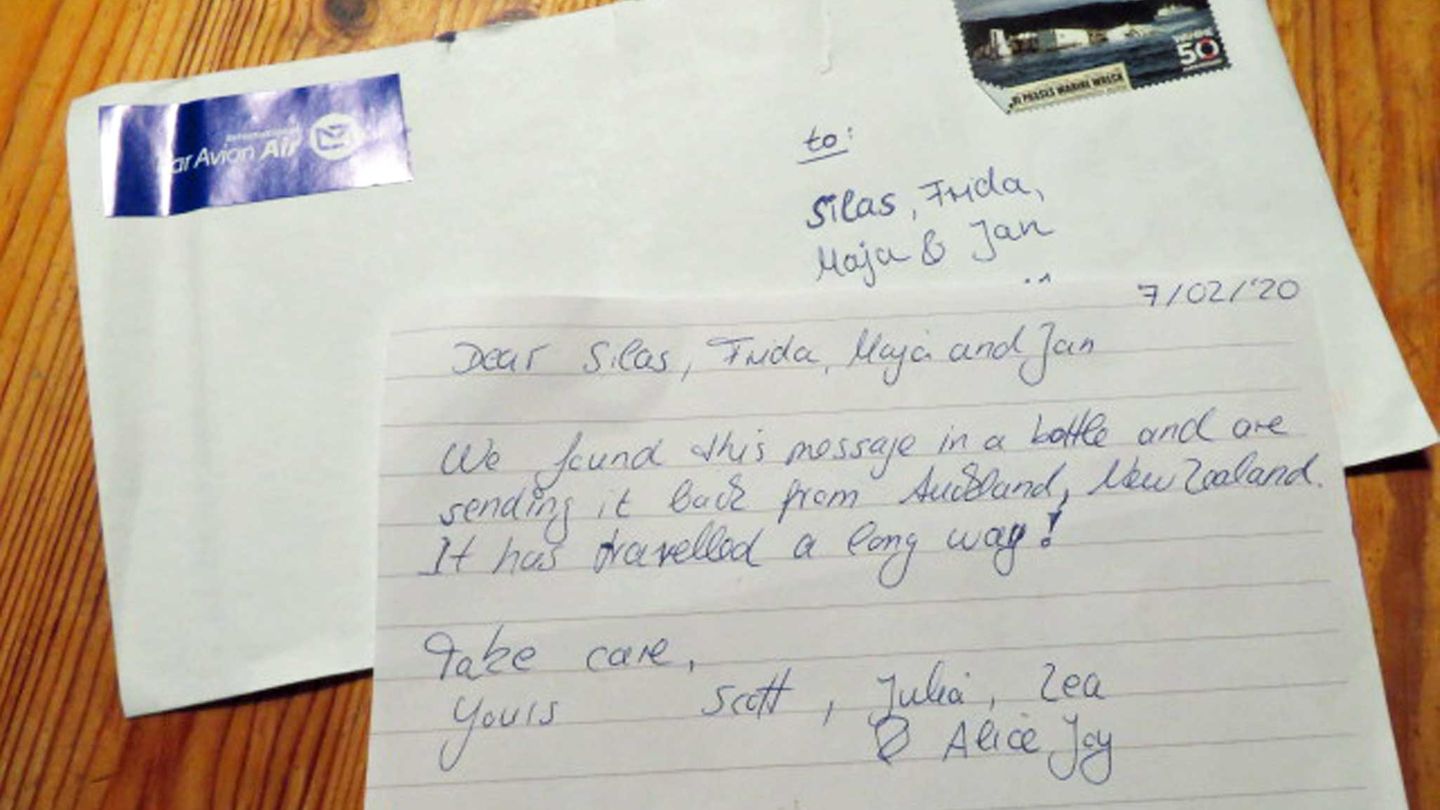 International
ar Avion Air
WAHINE
50
PHASES WAHINE WRECK
to:
Silas, Frida,
Maja & Jan
7/02/'20
Dear Silas, Frida, Maja and Jan
We found this message in a bottle and are
sending it back from Auckland, New Zealand.
It has travelled a long way!
Take care,
Yours Scott, Julia, Zea
& Alice Joy